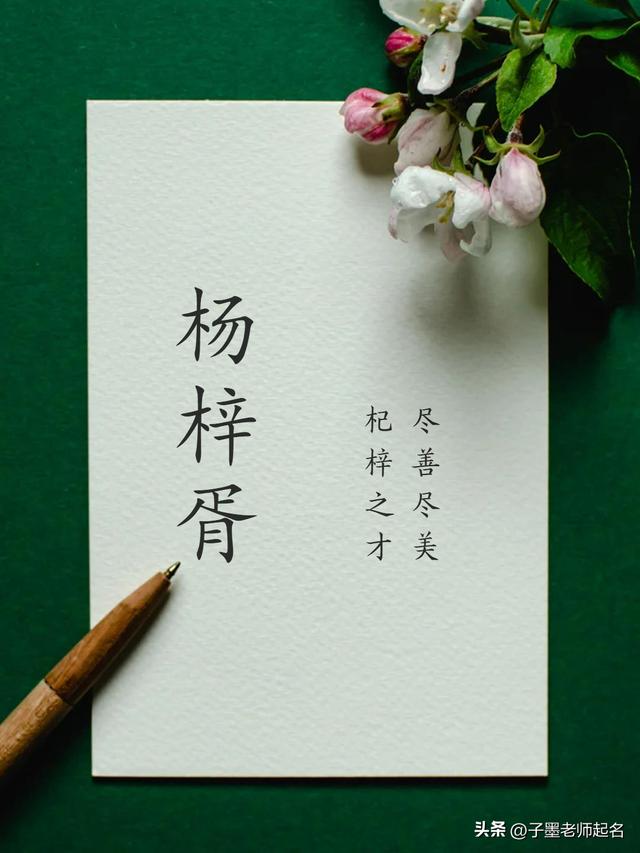 杨梓胥
尽善尽美
杞梓之才
头条 @子墨老师起名